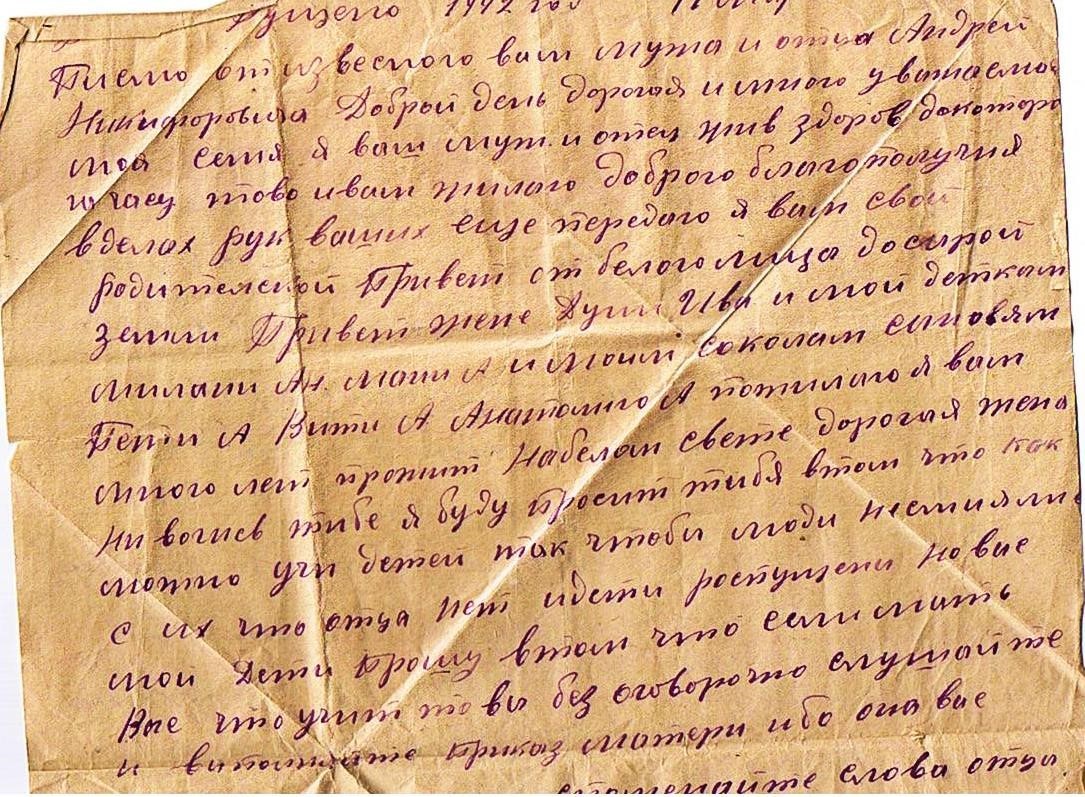 пущено 1942 год
Писмо от извесного вам мужа и отца Андрей
Никифоровича Доброй день дорогая и много уважаемоя
моя семия я ваш муж. и отец жив здоров докоторо
го часу тово и вам жилаю доброго благополучия
в делах рук ваших еще передаю я вам свой
родителской Привет от белого лица до сырой
земли Привет жене Души Ива и мой деткам
милаши Ан. Маши А и моим соколам сыновям
Пети А Вити А Анатолию А пожилаю я вам
много лет прожит На белом свете дорогая жена
ни вогись тибе я буду просит тибя втом что как
можно учи детей так чтобы люди несмиялис
с их что отца нет идети роспущени но вые
мои Дети Прошу втом что если мать
Вас что учит то вы без оговорочно слушайте
и выполняйте приказ матери ибо она вас
слова отца